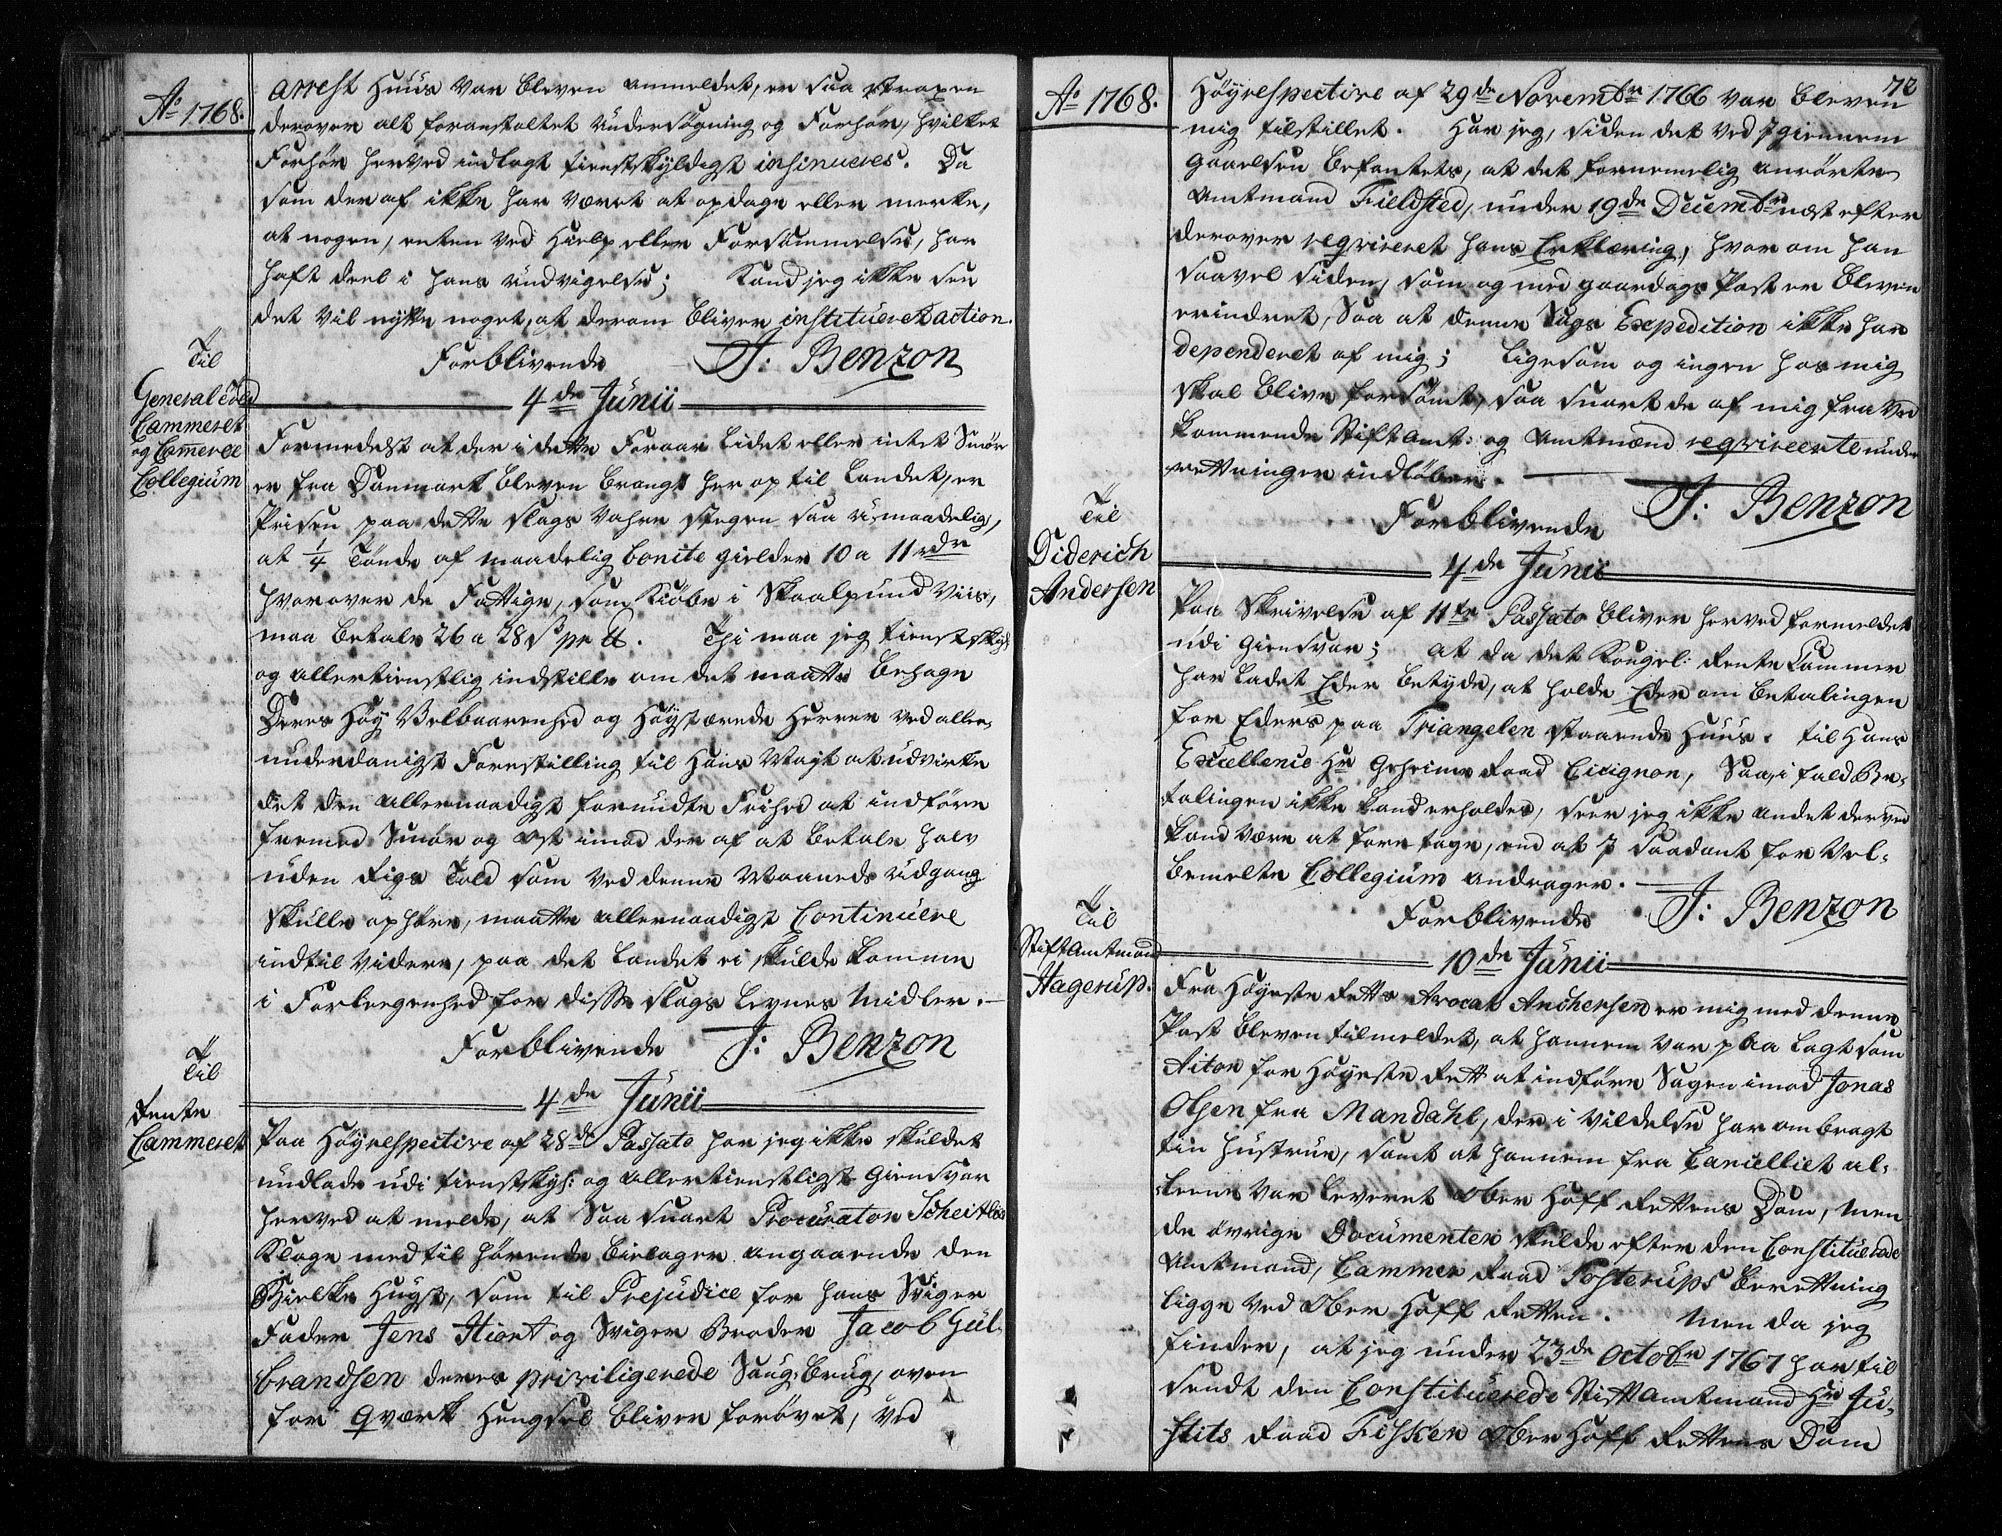 Ao 1768.
Arrest Huus var bleven anmeldet, er saa straxen
derover alt foranstaltet Undersøgning og Forhør, hvilket
Forhør herved indlagt tienstskyldigst insinueres. Da
som deraf ikke har været at opdage eller merke,
at nogen, enten ved Hielp eller Forsømmelse, har
haft deel i hans undvigelse; Kand jeg ikke see
det vil nytte noget, at derom bliver institueret action.
Forblivende J: Benzon
4de Junii
Til
General Told
Cammeret
og Com̅erce
Collegium
Formedelst at der i dette Foraar lidet eller intet Smør
er fra Danmark bleven bragt her op til Landet, er
Prisen paa dette slags Vahre stegen saa umaadelig,
at 1/4 Tønde af maadelig bonite gielder 10 a 11 rdr
hvorover de Fattige, som Kiøbe i Skaalpund viis,
maa betale 26 a 28 s pr lb. Thi maa jeg tienstskyl:
og allertienstlig indstille om det maatte behage
Deres Høy Velbaarenhed og Høystærede Herrer ved aller-
underdanigst Forestilling til Hans Mayt at udvirke
det den allernaadigst forundte Frihed at indføre
fremed Smør og Ost imod deraf at betale halv
uden Rigs Told som ved denne Maaneds udgang
skulle ophøre, maatte allernaadigst Continuere
indtil videre, paa det Landet ei skulde komme
i Forleegenhed for disse slags Levnes Midler.
Forblivende J: Benzon
4de Junii
Til
Rente
Cammeret
Paa Høyrespective af 28de Passato har jeg ikke skuldet
undlade udi tienstskyl: og allertienstligst Giensvar
herved at melde, at saa snart Procurator Scheitlies
Klage med tilhørende bielager angaaende den
Hielske Hugst, som til Prejudice for hans Sviger
Fader Jens Hiort og Sviger Broder Jacob Gul-
brandsen deres priviligerede Saug-brug, oven
for Qværk Hengsel bliver forøvet, ved
Ao 1768.
72
Høyrespective af 29de Novembr 1766 var bleven
mig tilstillet. Har jeg, siden det ved Igiennem
gaaelsen befantes, at det fornemelig anrørte
Amtmand Fieldsted, under 19de Decembr næst efter
derover reqvireret hans Erklæring, hvorom han
saavel siden, som og med gaardags Post er bleven
erindret, Saa at denne Sags Expedition ikke har
dependeret af mig; Ligesom og ingen hos mig
skal blive forsømt, saa snart de af mig fra Ved
kommende Stiftamt: og Amtmænd reqvireerte under
rettninger indløber.
Forblivende J: Benzon
4de Junii
Til
Diderich
Andersen
Paa Skrivelse af 11te Passato bliver herved formeldet
udi Giensvar; at da det Kongel: Rente Cammer
har ladet Eder betyde, at holde Eder om betalingen
for Eders paa Triangelen staaende Huus, til Hans
Excellence Hr Geheime Raad Cicignon, Saa, i fald Be-
talingen ikke kand erholdes, seer jeg ikke andet derved
kand være at foretage, end at I saadant for Vel-
bemelte Collegium andrager.
Forblivende J: Benzon
10de Junii
Til
Stiftamtmand
Hagerup.
Fra Høyeste Retts Avocat Anchersen er mig med denne
Post bleven tilmeldet, at hannem var paa lagt som
Actor for Høyeste Rett at indføre Sagen imod Jonas
Olsen fra Mandahl, der i Vildelse har ombragt
sin Hustrue, samt at hannem fra Cancelliet al-
leene var leveret Ober Hoff Rettens Dom, men
de øvrige Documenter skulde efter den Constituerede
Amtmand, Cammer Raad Tosterups beretning
ligge ved Ober Hoff Retten. Men da jeg
finder, at jeg under 23de Octobr 1767 har til
sendt den Constituerede Stiftamtmand Hr Ju-
stits Raad Fisker Ober Hoff Rettens Dom